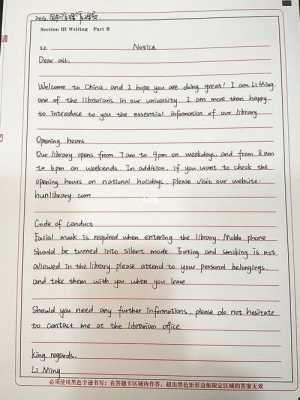 Section III Writing Part B
52. Notice
Dear all,
Welcome to China and I hope you are doing great! I am Li Ming,
one of the librarians in our university. I am more than happy
to introduce to you the essential information of our library.
Opening hours
Our library opens from 7 am to 9 pm on weekdays, and from 8 am
to 6 pm on weekends. In addition, if you want to check the
opening hours on national holidays, please visit our website
hunlibrary.com
Code of conduct
Facial mask is required when entering the library. Mobile phone
should be turned into silent mode. Eating and smoking is not
allowed in the library. please attend to your personal belongings,
and take them with you when you leave.
Should you need any further informations, please do not hesitate
to contact me at the librarian office.
King regards,
Li Ming
必须使用黑色字迹书写;在答题卡区域内作答,超出黑色矩形边框限定区域的答案无效